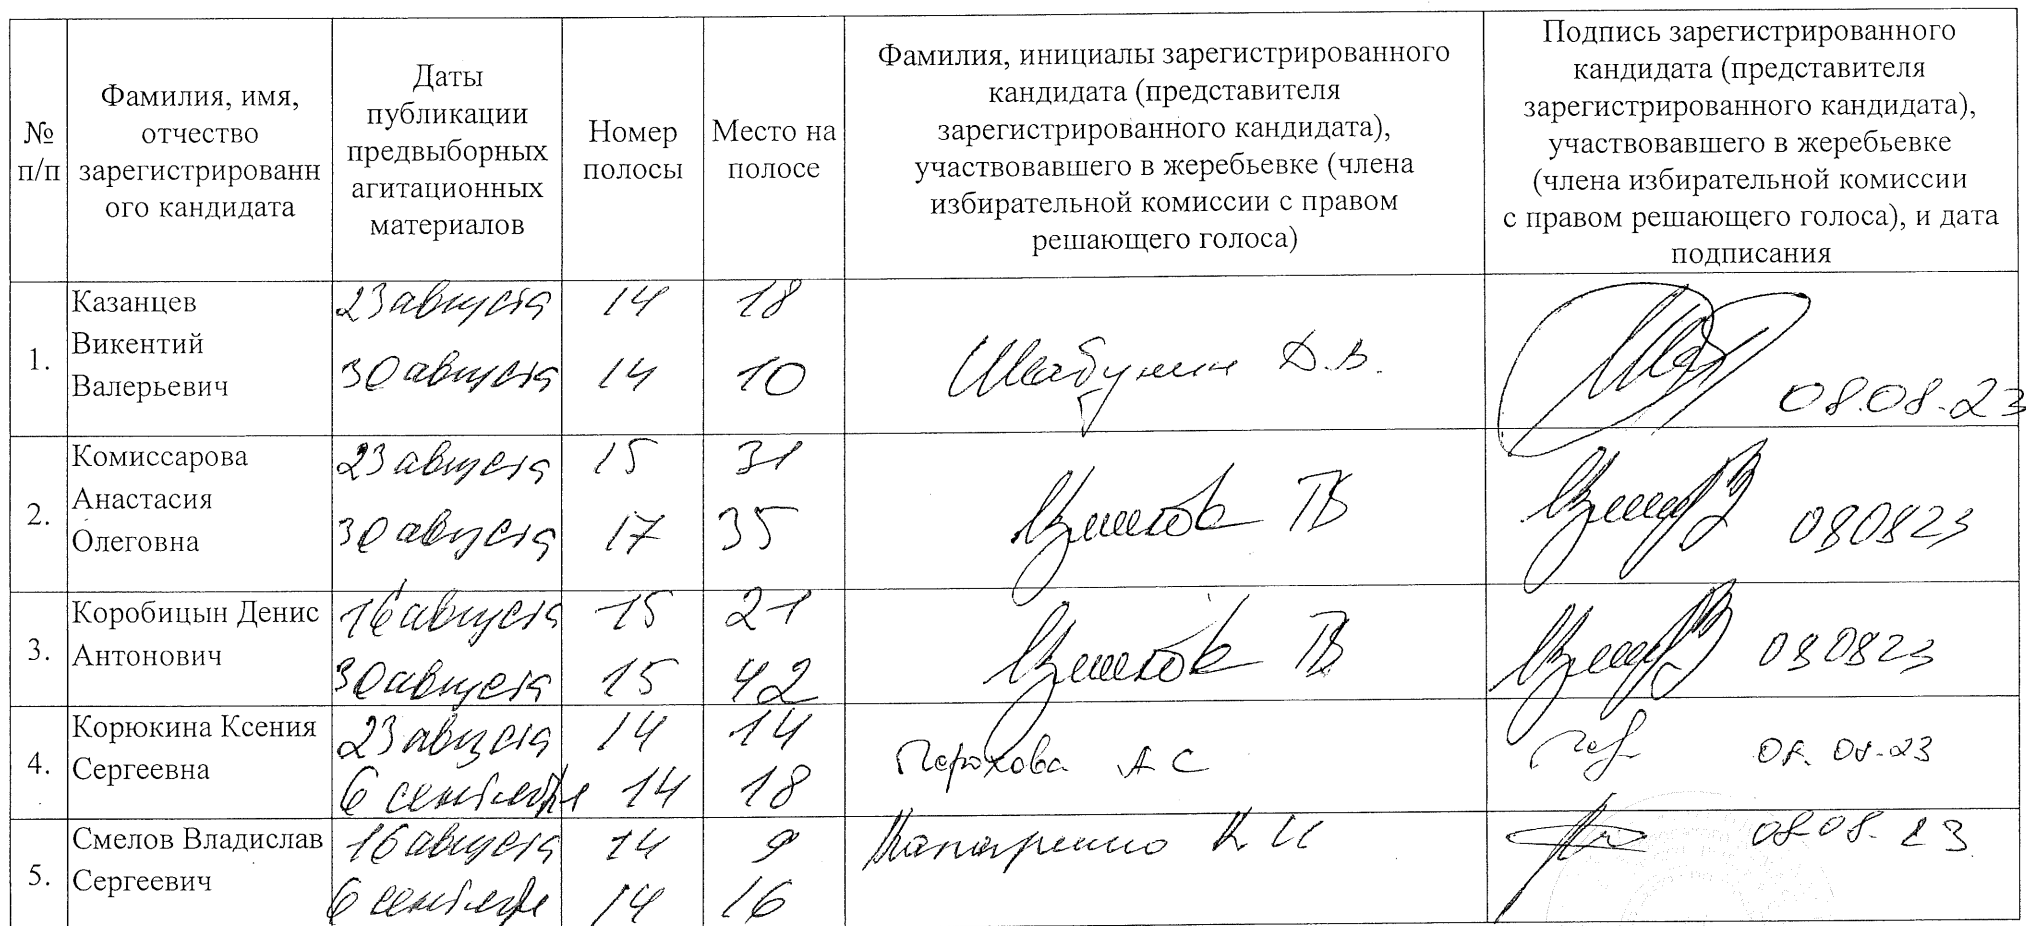 №
п/п
Фамилия, имя,
отчество
зарегистрированн
ого кандидата
Даты
публикации
предвыборных
агитационных
материалов
Номер
полосы
Место на
полосе
Фамилия, инициалы зарегистрированного
кандидата (представителя
зарегистрированного кандидата),
участвовавшего в жеребьевке (члена
избирательной комиссии с правом
решающего голоса)
Подпись зарегистрированного
кандидата (представителя
зарегистрированного кандидата),
участвовавшего в жеребьевке
(члена избирательной комиссии
с правом решающего голоса), и дата
подписания
1.
Казанцев
Викентий
Валерьевич
23 августа 14 18
30 августа 14 10
Шабунин Д.В.
08.08.23
2.
Комиссарова
Анастасия
Олеговна
23 августа 15 31
30 августа 17 35
ТВ
080823
3.
Коробицын Денис
Антонович
16 августа 15 21
30 августа 15 42
ТВ
080823
4.
Корюкина Ксения
Сергеевна
23 августа 14 14
6 сентября 14 18
Терехова А С
08.08.23
5.
Смелов Владислав
Сергеевич
16 августа 14 9
6 сентября 14 16
08.08.23